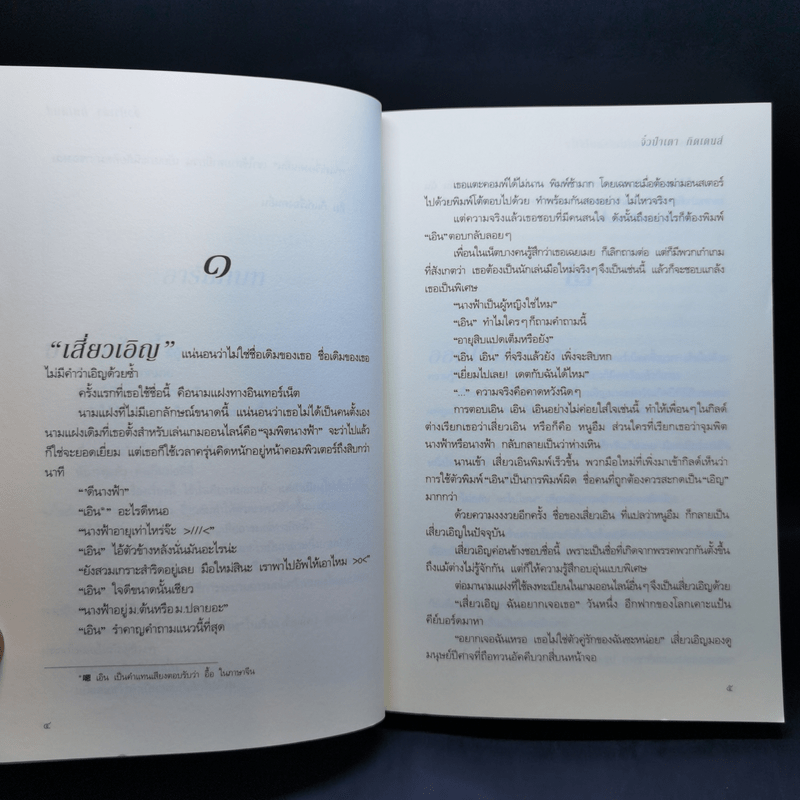 ๑
“เสี่ยวเอิญ” แน่นอนว่าไม่ใช่ชื่อเดิมของเธอ ชื่อเดิมของเธอ
ไม่มีคำว่าเอิญด้วยซ้ำ
ครั้งแรกที่เธอใช้ชื่อนี้ คือนามแฝงทางอินเทอร์เน็ต
นามแฝงที่ไม่มีเอกลักษณ์ขนาดนี้ แน่นอนว่าเธอไม่ได้เป็นคนตั้งเอง
นามแฝงเดิมที่เธอตั้งสำหรับเล่นเกมออนไลน์คือ “จุมพิตนางฟ้า” จะว่าไปแล้ว
ก็ใช่จะยอดเยี่ยม แต่เธอก็ใช้เวลาครุ่นคิดหนักอยู่หน้าคอมพิวเตอร์ถึงสิบกว่า
นาที
“‘ดีนางฟ้า”
“เอิน*” อะไรดีหนอ
“นางฟ้าอายุเท่าไหร่จ๊ะ >///<”
“เอิน” ไอ้ตัวข้างหลังนั่นมันอะไรน่ะ
“ยังสวมเกราะสำริดอยู่เลย มือใหม่สินะ เราพาไปอัพให้เอาไหม >o<”
“เอิน” ใจดีขนาดนั้นเชียว
“นางฟ้าอยู่ ม.ต้นหรือ ม.ปลายอะ”
“เอิน” รำคาญคำถามแนวนี้ที่สุด
*嗯 เอิน เป็นคำแทนเสียงตอบรับว่า อื้อ ในภาษาจีน
๔
จิ่วป้าเตา กิตเตนส์
เธอแตะคอมพ์ได้ไม่นาน พิมพ์ช้ามาก โดยเฉพาะเมื่อต้องฆ่ามอนสเตอร์
ไปด้วยพิมพ์โต้ตอบไปด้วย ทำพร้อมกันสองอย่าง ไม่ไหวจริงๆ
แต่ความจริงแล้วเธอชอบที่มีคนสนใจ ดังนั้นถึงอย่างไรก็ต้องพิมพ์
“เอิน” ตอบกลับลอยๆ
เพื่อนในเน็ตบางคนรู้สึกว่าเธอเฉยเมย ก็เลิกถามต่อ แต่ก็มีพวกเก๋าเกม
ที่สังเกตว่า เธอต้องเป็นนักเล่นมือใหม่จริงๆ จึงเป็นเช่นนี้ แล้วก็จะชอบแกล้ง
เธอเป็นพิเศษ
“นางฟ้าเป็นผู้หญิงใช่ไหม”
“เอิน” ทำไมใครๆ ก็ถามคำถามนี้
“อายุสิบแปดเต็มหรือยัง”
“เอิน เอิน” ที่จริงแล้วยัง เพิ่งจะสิบหก
“เยี่ยมไปเลย! เดตกับฉันได้ไหม”
“...” ความจริงคือคาดหวังนิดๆ
การตอบเอิน เอิน เอินอย่างไม่ค่อยใส่ใจเช่นนี้ ทำให้เพื่อนๆ ในกิลด์
ต่างเรียกเธอว่าเสี่ยวเอิน หรือก็คือ หนูอืม ส่วนใครที่เรียกเธอว่าจุมพิต
นางฟ้าหรือนางฟ้า กลับกลายเป็นว่าห่างเหิน
นานเข้า เสี่ยวเอินพิมพ์เร็วขึ้น พวกมือใหม่ที่เพิ่งมาเข้ากิลด์เห็นว่า
การใช้ตัวพิมพ์ “เอิน” เป็นการพิมพ์ผิด ชื่อคนที่ถูกต้องควรสะกดเป็น “เอิญ”
มากกว่า
ด้วยความงงงวยอีกครั้ง ชื่อของเสี่ยวเอิน ที่แปลว่าหนูอืม ก็กลายเป็น
เสี่ยวเอิญในปัจจุบัน
เสี่ยวเอิญค่อนข้างชอบชื่อนี้ เพราะเป็นชื่อที่เกิดจากพรรคพวกกันตั้งขึ้น
ถึงแม้ต่างไม่รู้จักกัน แต่ก็ให้ความรู้สึกอบอุ่นแบบพิเศษ
ต่อมานามแฝงที่ใช้ลงทะเบียนในเกมออนไลน์อื่นๆ จึงเป็นเสี่ยวเอิญด้วย
“เสี่ยวเอิญ ฉันอยากเจอเธอ” วันหนึ่ง อีกฟากของโลกเคาะแป้น
คีย์บอร์ดมาหา
“อยากเจอฉันเหรอ เธอไม่ใช่ตัวคู่รักของฉันซะหน่อย” เสี่ยวเอิญมองดู
มนุษย์ปีศาจที่ถือทวนอัคคีบวกสี่บนหน้าจอ
๕